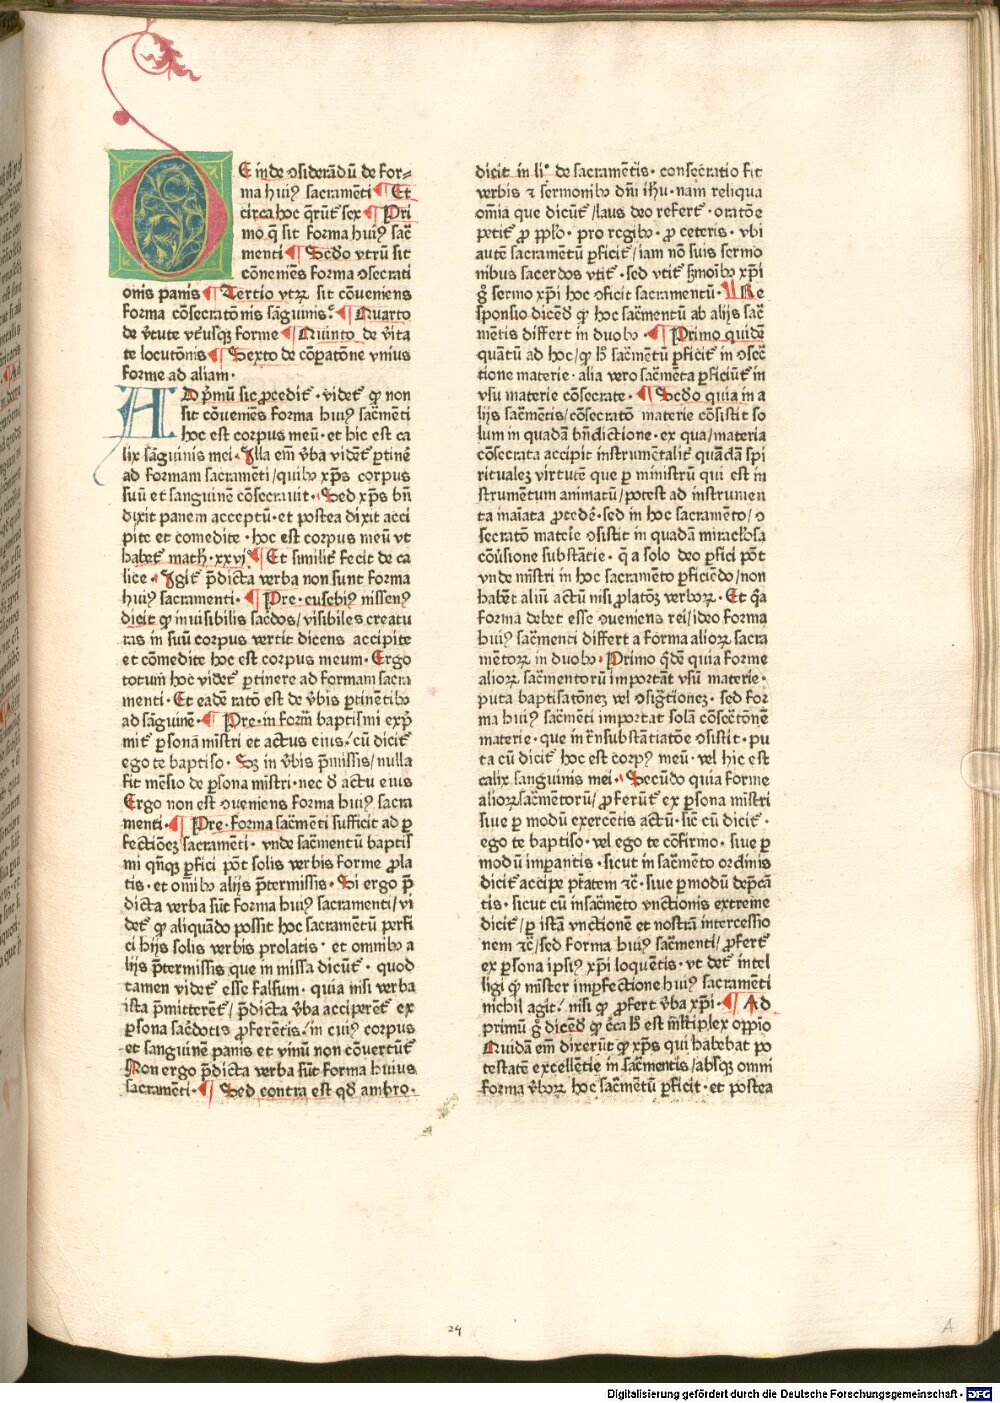 E inde ↄsiderādū de for⸗
ma huiꝰ sacramēti ¶ Et
circa hoc q̄rūt᷑ sex ¶ Pri
mo q̄ sit forma huiꝰ sac̄
menti ¶ Secdo vtrū sit
cōneniēs forma ↄsecrati
onis panis ¶ Tertio vtꝝ sit cōveniens
forma cōsecratōnis sāguinis. ¶ Quarto
de v̄tute vt᷑usqꝫ forme ¶ Quinto de v̄ita
te locutōnis ¶ Sexto de cōpatōne vnius
forme ad aliam·
AD p̄mū sic ꝓcedit᷑· videt᷑ ꝙ non
sit cōveniēs forma huiꝰ sac̄mēti
hoc est corpus meū·et hic est ca
lix sāguinis mei· Illa em̄ v̄ba vident᷑ ꝑtinē
ad formam sacramēti/quibꝰ xp̄s corpus
suū et sanguinē cōsecravit· Sed xp̄s bn̄
dixit panem acceptū·et postea dixit acci
pite et comedite·hoc est corpus meū vt
habet᷑ math·xxvi· ¶ Et similit᷑ fecit de ca
lice· Igit᷑ p̄dicta verba non sunt forma
huiꝰ sacramenti· ¶ Pre·eusebiꝰ nissenꝰ
dicit ꝙ invisibilis sac̄dos/visibiles creatu
ras in suū corpus vertit dicens accipite
et cōmedite hoc est corpus meum· Ergo
totum hoc videt᷑ ꝑtinere ad formam sacra
menti· Et eadē ratō est de v̄bis ꝑtinētibꝰ
ad sāguinē· ¶ Pre·in form̄ baptismi exp̄
mit᷑ ꝑsonā mīstri et actus eius/cū dicit᷑
ego te baptiso· Sꝫ in v̄bis p̄missis/nulla
fit mēsio de ꝑsona mīstri·nec d̄ actu eius
Ergo non est ↄveniens forma huiꝰ sacra
menti· ¶ Pre·forma sac̄mēti sufficit ad ꝑ
fectiōeꝫ sacramēti·vnde sac̄mentū baptis
mi qn̄qꝫ ꝑfici pōt solis verbis forme ꝓla
tis·et om̄ibꝰ alijs p̄termissis· Si ergo p̄
dicta verba sūt forma huiꝰ sacramenti/vi
det᷑ ꝙ aliquādo possit hoc sacramētū perfi
ci hijs solis verbis prolatis·et omnibꝰ a
lijs p̄termissis que in missa dicūt᷑·quod
tamen videt᷑ esse falsum·quia nisi verba
ista p̄mitterēt᷑/p̄dicta v̄ba acciperēt᷑ ex
ꝑsona sac̄dotis ꝓferētis/in cuiꝰ corpus
et sanguinē panis et vinū non cōvertūt᷑
Non ergo p̄dicta verba sūt forma huius
sacramēti· ¶ Sed contra est qd̄ ambro·
dicit in li° de sacramētis·consecratio fit
verbis ⁊ sermonibꝰ dn̄i ih̄u·nam reliqua
om̄ia que dicūt᷑/laus deo refert᷑·oratōe
petit᷑ ꝓ ppl̄o·pro regibꝰ·ꝓ ceteris·vbi
autē sacramētū ꝑficit᷑/iam nō suis sermo
nibus sacerdos vtit᷑·sed vtit᷑ ẜmōibꝰ xp̄i
g̊ sermo xp̄i hoc ↄficit sacramentū· ¶ Re
sponsio dicēd̄ ꝙ hoc sac̄mentū ab alijs sac̄
mētis differt in duobꝰ· ¶ Primo quidē
quātū ad hoc/ꝙ h̊ sac̄mētū ꝑficit᷑ in ↄsec̄
tione materie·alia vero sac̄mēta ꝑficiūt᷑ in
vsu materie cōsecrate· ¶ Secd̄o quia in a
lijs sac̄mētis/cōsecratō materie cōsistit so
lum in quadā bn̄dictione·ex qua/materia
cōsecrata accipit instrumētalit᷑ quādā spi
ritualeꝫ virtutē que ꝑ ministrū qui est in
strumētum animatū/potest ad instrumen
ta inaīata ꝓcedē·sed in hoc sacramēto/ↄ
secratō materie ↄsistit in quadā miracl̄osa
cōūsione substātie·q̄ a solo deo ꝑfici pōt
vnde mīstri in hoc sacramēto ꝑficiēdo/non
habet᷑ aliū actū nisi ꝓlatōꝫ verboꝝ· Et q̄a
forma debet esse ↄveniens rei/ideo forma
huiꝰ sac̄menti differt a forma alioꝝ sacra
mētoꝝ in duobꝰ· Primo q̄dē quia forme
alioꝝ sacramentorū importāt vsū materie·
puta baptisatōneꝫ vel ↄsiḡtioneꝫ·sed for
ma huiꝰ sac̄mēti importat solā cōsec̄tōnē
materie·que in tn̄substātiatōe ↄsistit·pu
ta cū dicit᷑ hoc est corpꝰ meū·vel hic est
calix sanguinis mei· Secūdo quia forme
alioꝝ sac̄mētorū/ꝓferūt᷑ ex ꝑsona mīstri
sive ꝑ modū exercētis actū·sic̄ cū dicit᷑·
ego te baptiso·vel ego te cōfirmo·sive ꝑ
modū imꝑantis·sicut in sac̄mēto ordinis
dicit᷑ accipe p̄tatem ⁊c̄·sive ꝑ modū dep̄cā
tis·sicut cū in sac̄mēto vnctionis extreme
dicit᷑/ꝑ istā vnctionē et nostrā intercessio
nem ⁊c̄/sed forma huiꝰ sac̄menti/ꝓfert᷑
ex ꝑsona ipsiꝰ xp̄i loquētis·vt det᷑ intel
ligi ꝙ mīster in ꝑfectione huiꝰ sacramēti
nichil agit/nisi ꝙ ꝓfert v̄ba xp̄i· ¶ Ad
primū g̊ dicēd̄ ꝙ c̄ca h̊ est m̄ltiplex oppīo
Quidā em̄ dixerūt ꝙ xp̄s qui habebat po
testatē excellētie in sac̄mentis/absqꝫ omni
forma v̄boꝝ hoc sac̄mētū ꝑficit·et postea
24
A
Digitalisierung gefördert durch die Deutsche Forschungsgemeinschaft - DFG